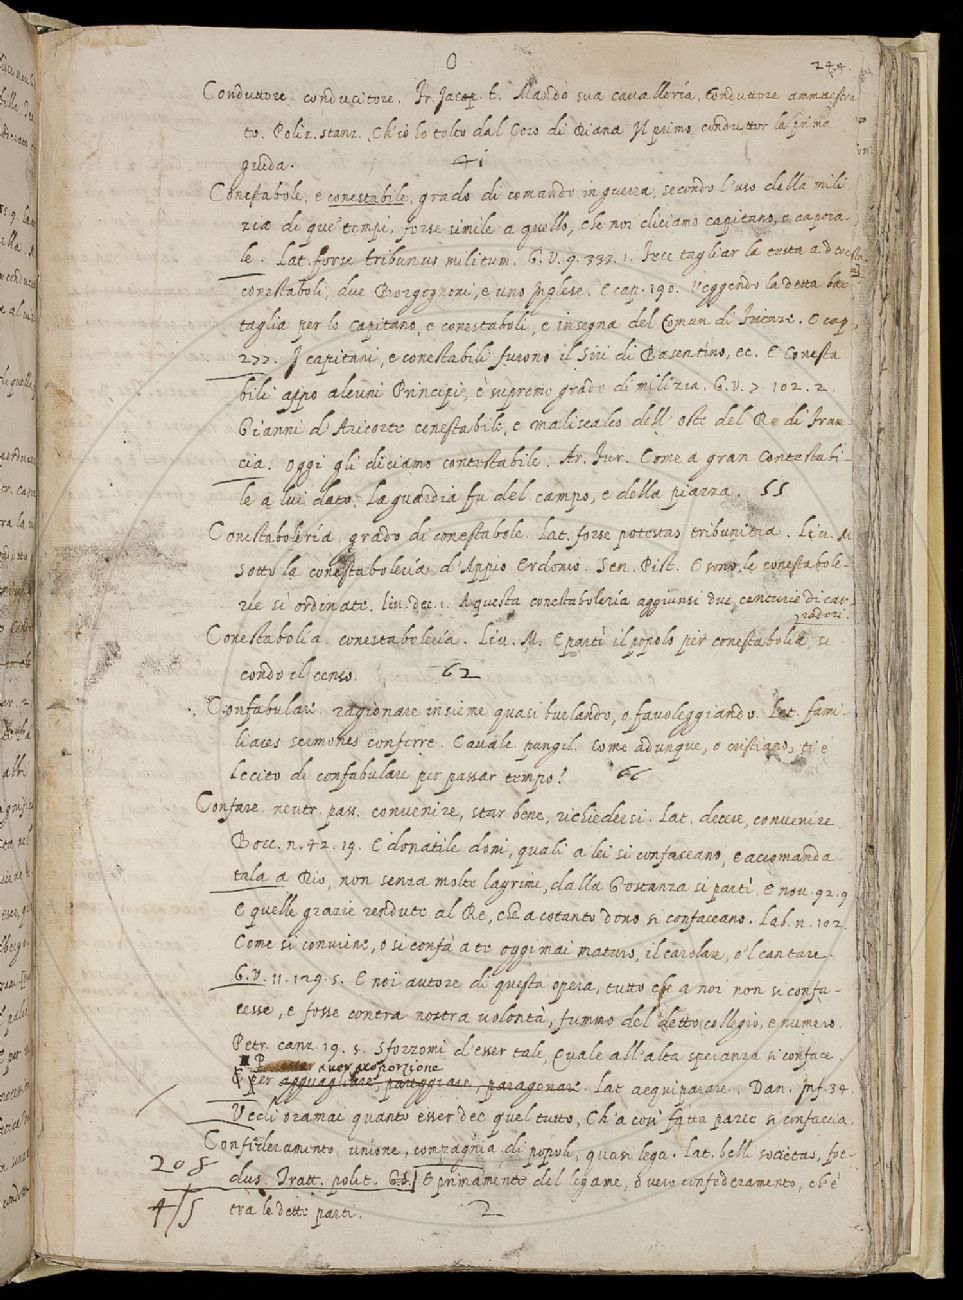 O 244.
Conduttore. conducitore. Fr. Jacop. t. Mandò sua cavalleria, conduttore ammaestra
to. Poliz. stanz. Ch'io ho tolto dal Coro di Diana Il primo conduttor la prima
guida. 41
Conestabole, e conestabile, grado di comando in guerra, secondo l'uso della mili
zia di que' tempi, forse simile a quello, che noi diciamo capitano, o capora-
le. Lat. forse tribunus militum. G. V. 9. 333. 1. Fece tagliar la testa a
conestaboli, due Borgognoni, e uno Inglese. E cap. 190. Veggendo la detta bat
taglia per lo Capitano, e conestaboli, e insegna del Comun di Firenze. E cap.
277. I capitani, e conestabili furono il Siri di Basentino, ec. E Conesta
bili appo alcuni Principi, è supremo grado di milizia. G. V. 7. 102. 2.
Gianni d' conestabile, e maliscalco dell' oste del Re di Fran
cia. Oggi gli diciamo contestabile. Ar. Fur. Come a gran Contestabi-
le a lui dato La guardia fu del campo, e della piazza. 55
Conestaboleria. grado di conestabole. Lat. forse potestas tribunitia. Liv. M
sotto la conestaboleria d'Appio Erdonio. Sen. Pist. E sono le conestabole-
rie sì ordinate. Liv. dec. 1. A questa conestaboleria aggiunsi due centurie di car-
radori.
Conestabolia. conestaboleria. Liv. M. E partì il popolo per conestabolia, se-
condo il censo. 62
Confabulare. ragionare insieme quasi burlando, o favoleggiando. Lat. fami-
liares sermones conferre. Cavalc. pungil. Come adunque, o cristiano, ti è
lecito di confabulare per passar tempo! 66
Confare. neutr. pass. convenire, star bene, richiedersi. Lat. decere, convenire
Bocc. n. 42. 19. E donatile doni, quali a lei si confaceano, e accomanda
tala a Dio, non senza molte lagrime, dalla Gostanza si partì. E nov. 92. 9
E quelle grazie rendute al Re, che a cotanto dono si confaceano. Lab. n. 102.
Come si conviene, o si confà a te oggimai maturo, il carolare, o 'l cantare.
G. V. 11. 129. 5. E noi autore di questa opera, tutto che a noi non si confa-
cesse, e fosse contra nostra volontà, fummo del detto collegio, e numero.
Petr. canz. 19. 5. Sforzomi d'esser tale, Quale all'alta speranza si conface.
aver proporzione
per agguagliare, pareggiare, paragonare. Lat. aequiparare. Dan. Inf. 34.
Vedi oramai quanto esser dee quel tutto, Ch'a così fatta parte si confaccia.
Confederamento. unione, compagnia di popoli, quasi lega. Lat. belli societas, foe-
208
dus. Tratt. polit. E primamente del legame, ovvero confederamento, ch'è
4/5
tra le dette parti. 2